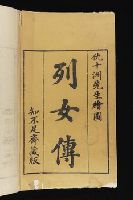 仇十洲先生繪圖
列女傳
知不足齋藏版